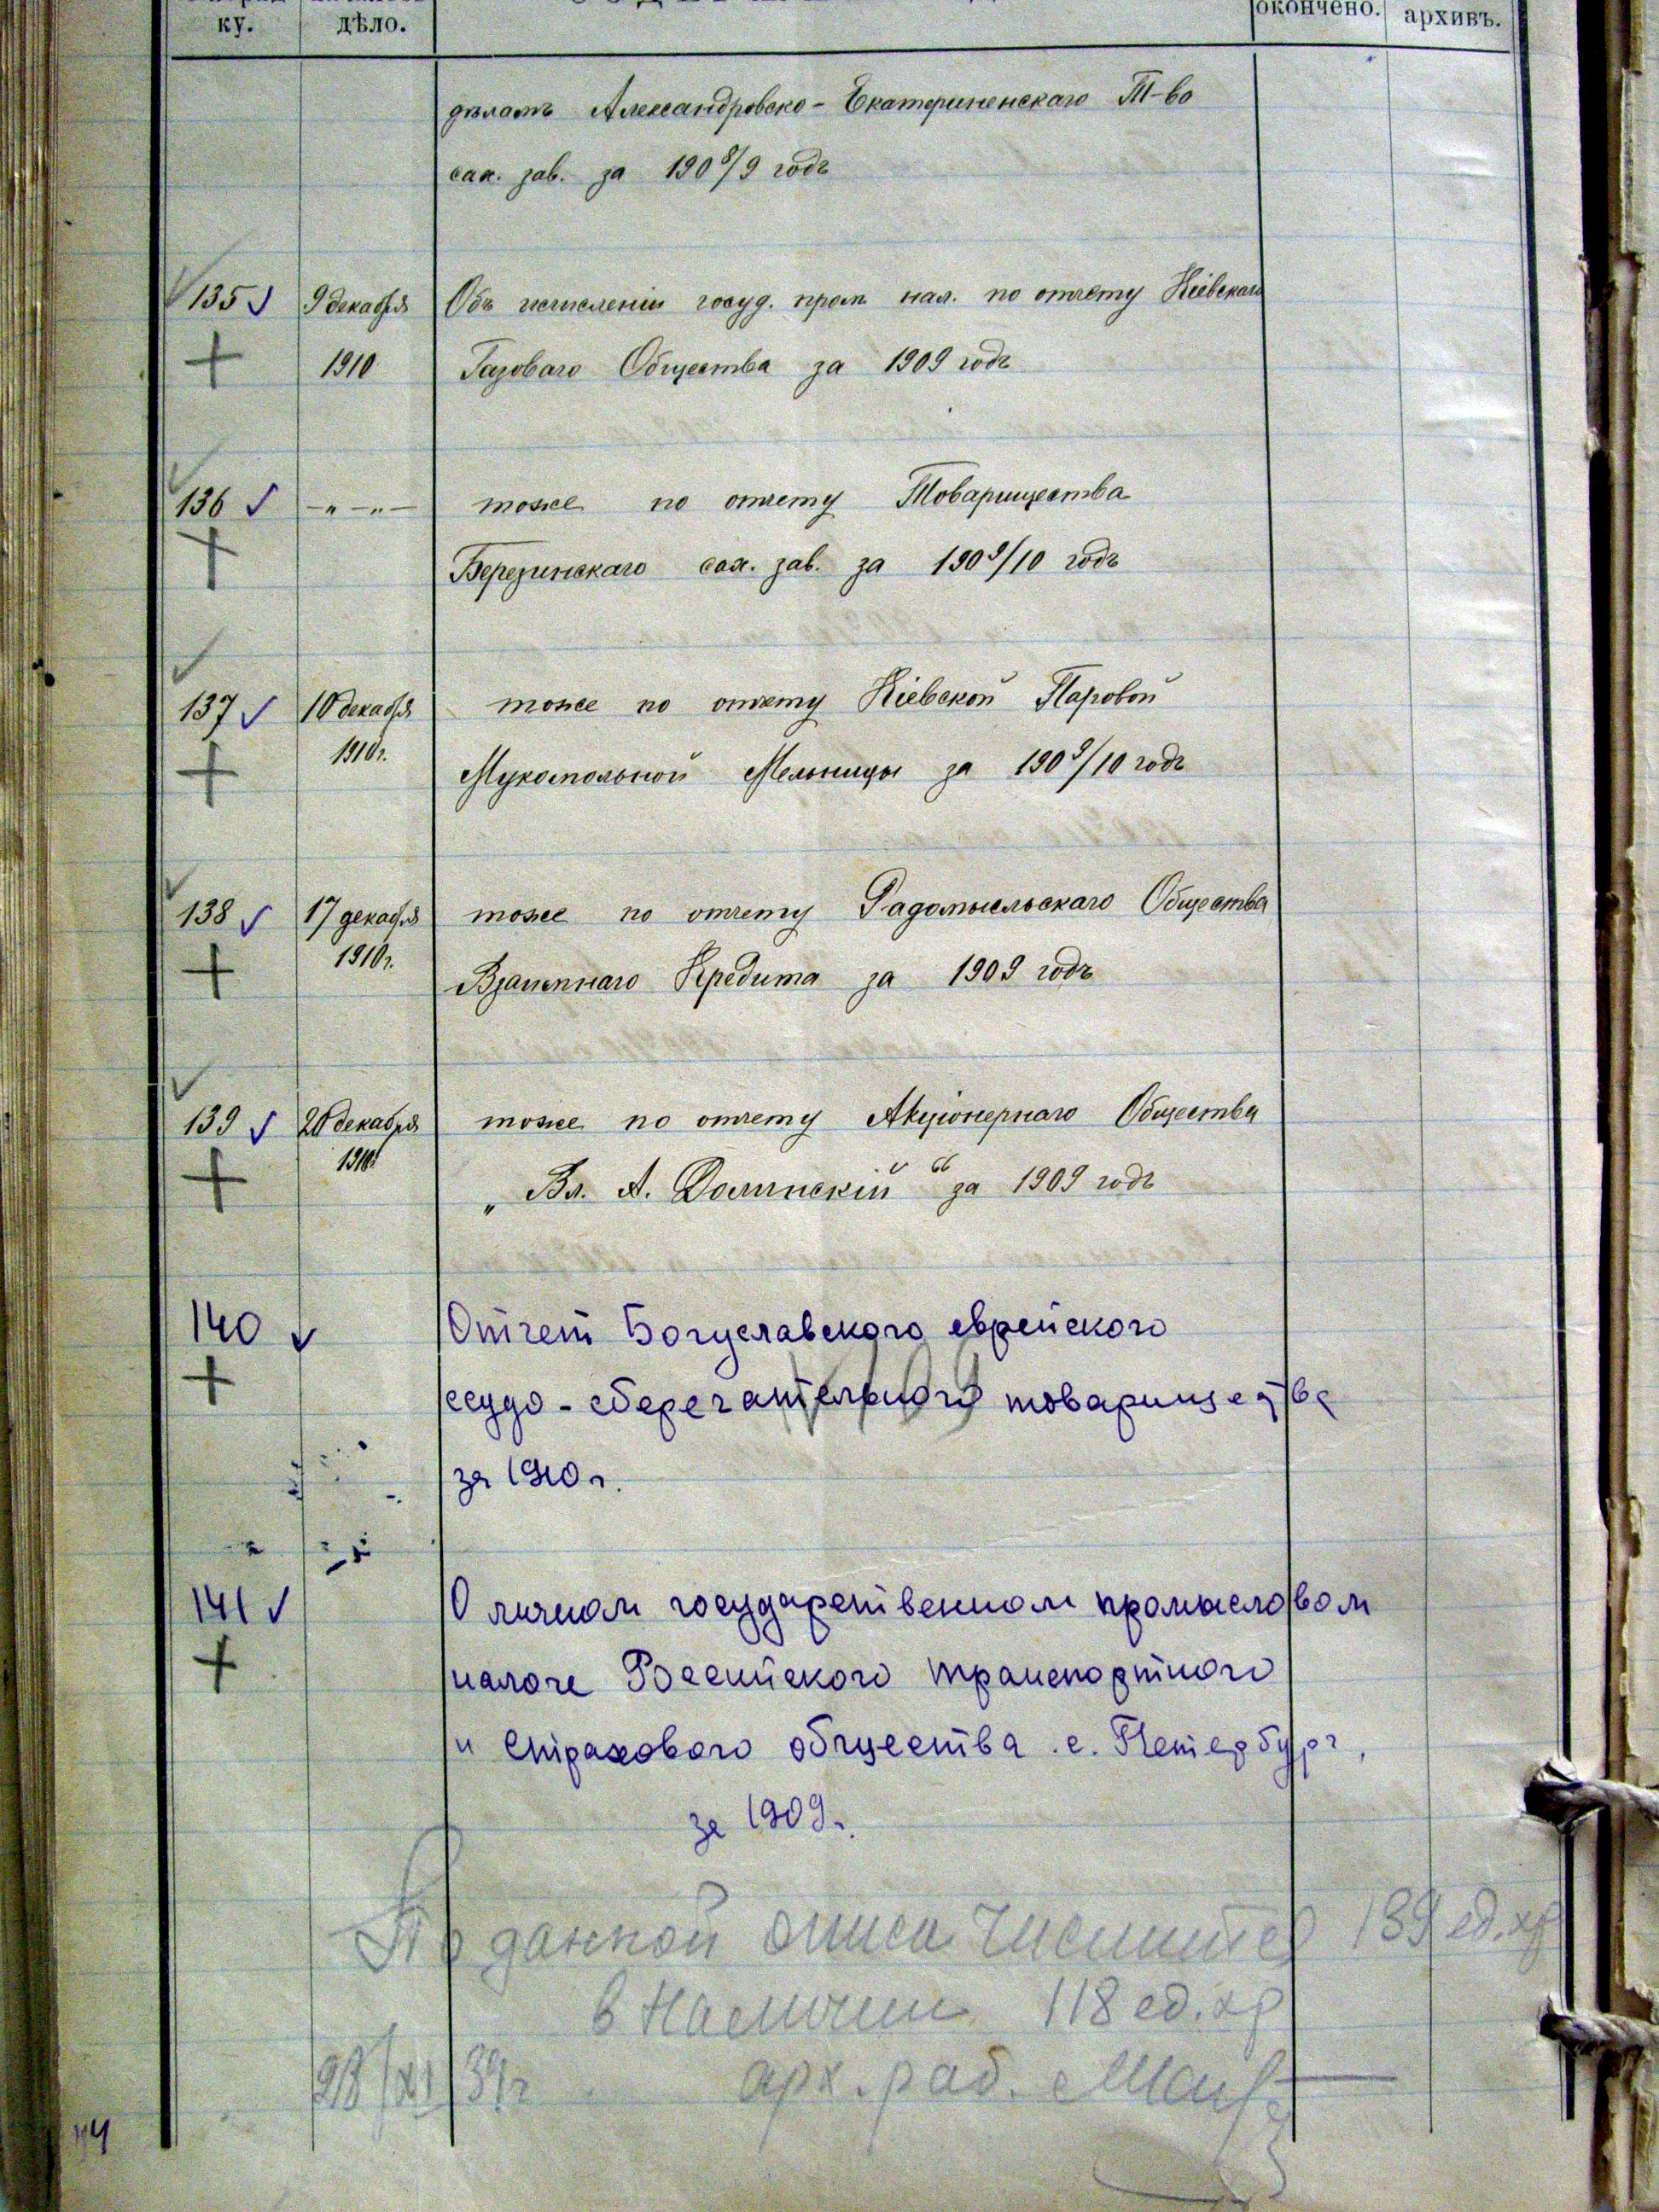 ку. дѣло. окончено. архивъ.
дѣламъ Александровско-Екатериненскаго Т-во
сах. зав. за 1908/9 годъ
135 9 декабря Объ исчисленіи госуд. пром. нал. по отчету Кіевскаго
1910 Газоваго Общества за 1909 годъ
136 -"-"- тоже по отчету Товарищества
Березинскаго сах. зав. за 1909/10 годъ
137 10 декабря тоже по отчету Кіевской Паровой
1910г. Мукомольной Мельницы за 1909/10 годъ
138 17 декабря тоже по отчету Радомысльскаго Общества
1910г. Взаимнаго Кредита за 1909 годъ
139 20 декабря тоже по отчету Акціонернаго Общества
1910 „Вл. А. Долинскій“ за 1909 годъ
140 Отчет Богуславского еврейского
ссудо-сберегательного товарищества
за 1910г.
141 О личном государственном промысловом
налоге Российского транспортного
и страхового общества с. Петербург,
за 1909г.
По данной описи числится 139 ед. хр
в наличии 118 ед. хр
28/XI 39г арх. раб.